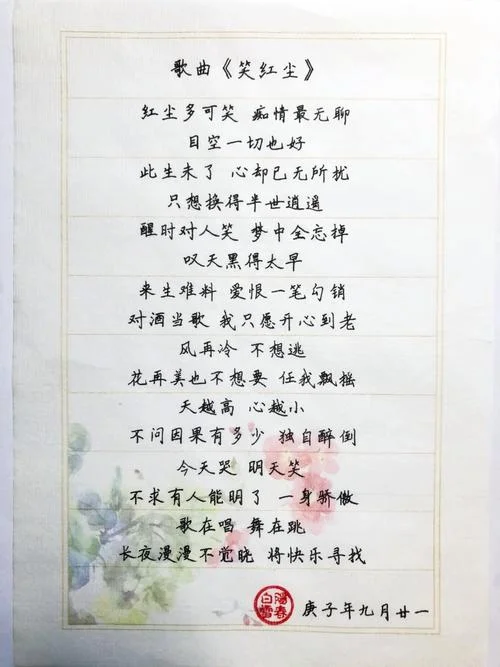 歌曲《笑红尘》
红尘多可笑 痴情最无聊
目空一切也好
此生未了 心却已无所扰
只想换得半世逍遥
醒时对人笑 梦中全忘掉
叹天黑得太早
来生难料 爱恨一笔勾销
对酒当歌 我只愿开心到老
风再冷 不想逃
花再美也不想要 任我飘摇
天越高 心越小
不问因果有多少 独自醉倒
今天哭 明天笑
不求有人能明了 一身骄傲
歌在唱 舞在跳
长夜漫漫不觉晓 将快乐寻找
阳春白雪
庚子年九月廿一